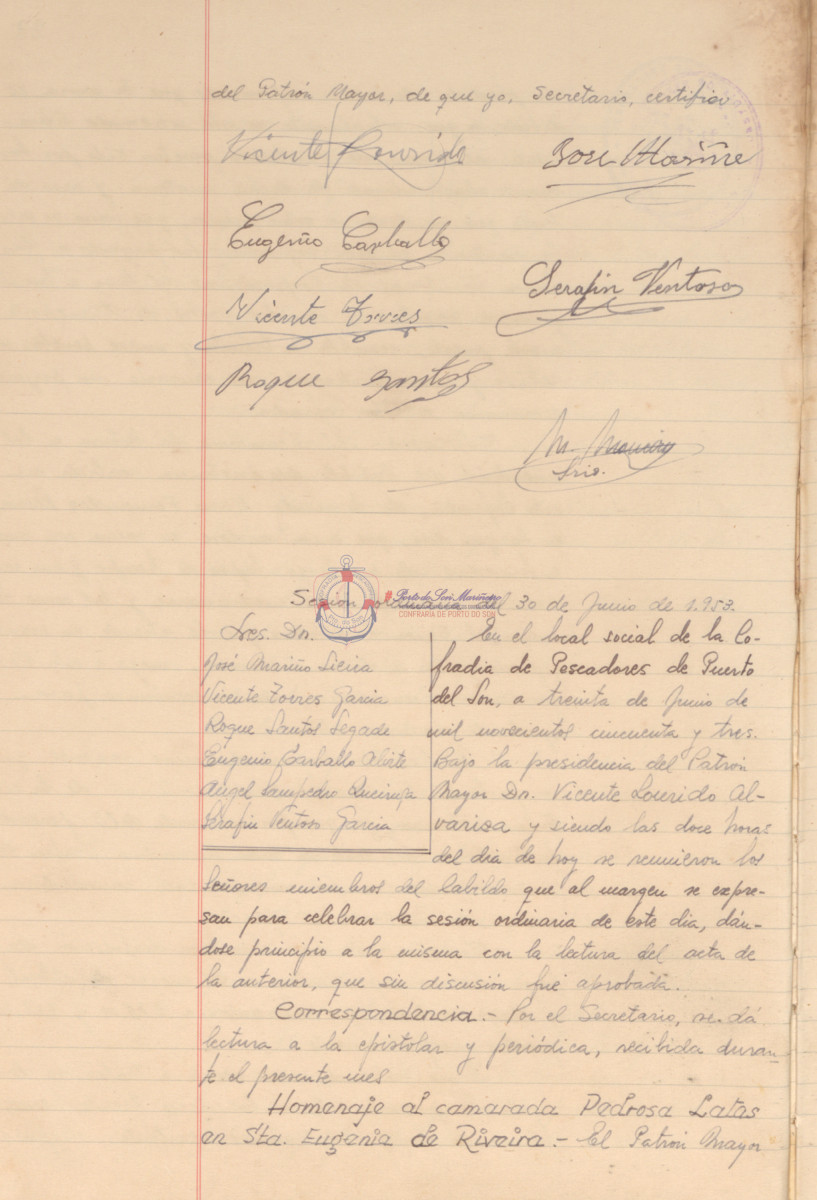 del Patrón Mayor, de que yo, Secretario, certifico
Vicente Lourido
José Mariño
Eugenio Carballo
Serafin Ventoso
Vicente Torres
Roque Santos
M.
Srio.
Sesión ordinaria del 30 de Junio de 1.953.
Porto do Son Mariñeiro
CONFRARÍA DE PORTO DO SON
Sres. Dn.
José Mariño Sieira
Vicente Torres Garcia
Roque Santos Segade
Eugenio Carballo Abite
Angel Sampedro Queiruga
Serafin Ventoso Garcia
En el local social de la Co-
fradia de Pescadores de Puerto
del Son, a treinta de Junio de
mil novecientos cincuenta y tres.
Bajo la presidencia del Patrón
Mayor Dn. Vicente Lourido Al-
varisa y siendo las doce horas
del dia de hoy se reunieron los
Señores miembros del Cabildo que al margen se expre-
san para celebrar la sesión ordinaria de este dia, dán-
dose principio a la misma con la lectura del acta de
la anterior, que sin discusión fué aprobada.
Correspondencia.- Por el Secretario, se dá
lectura a la epistolar y periódica, recibida duran-
te el presente mes
Homenaje al camarada Pedrosa Latas
en Sta. Eugenia de Riveira.- El Patron Mayor